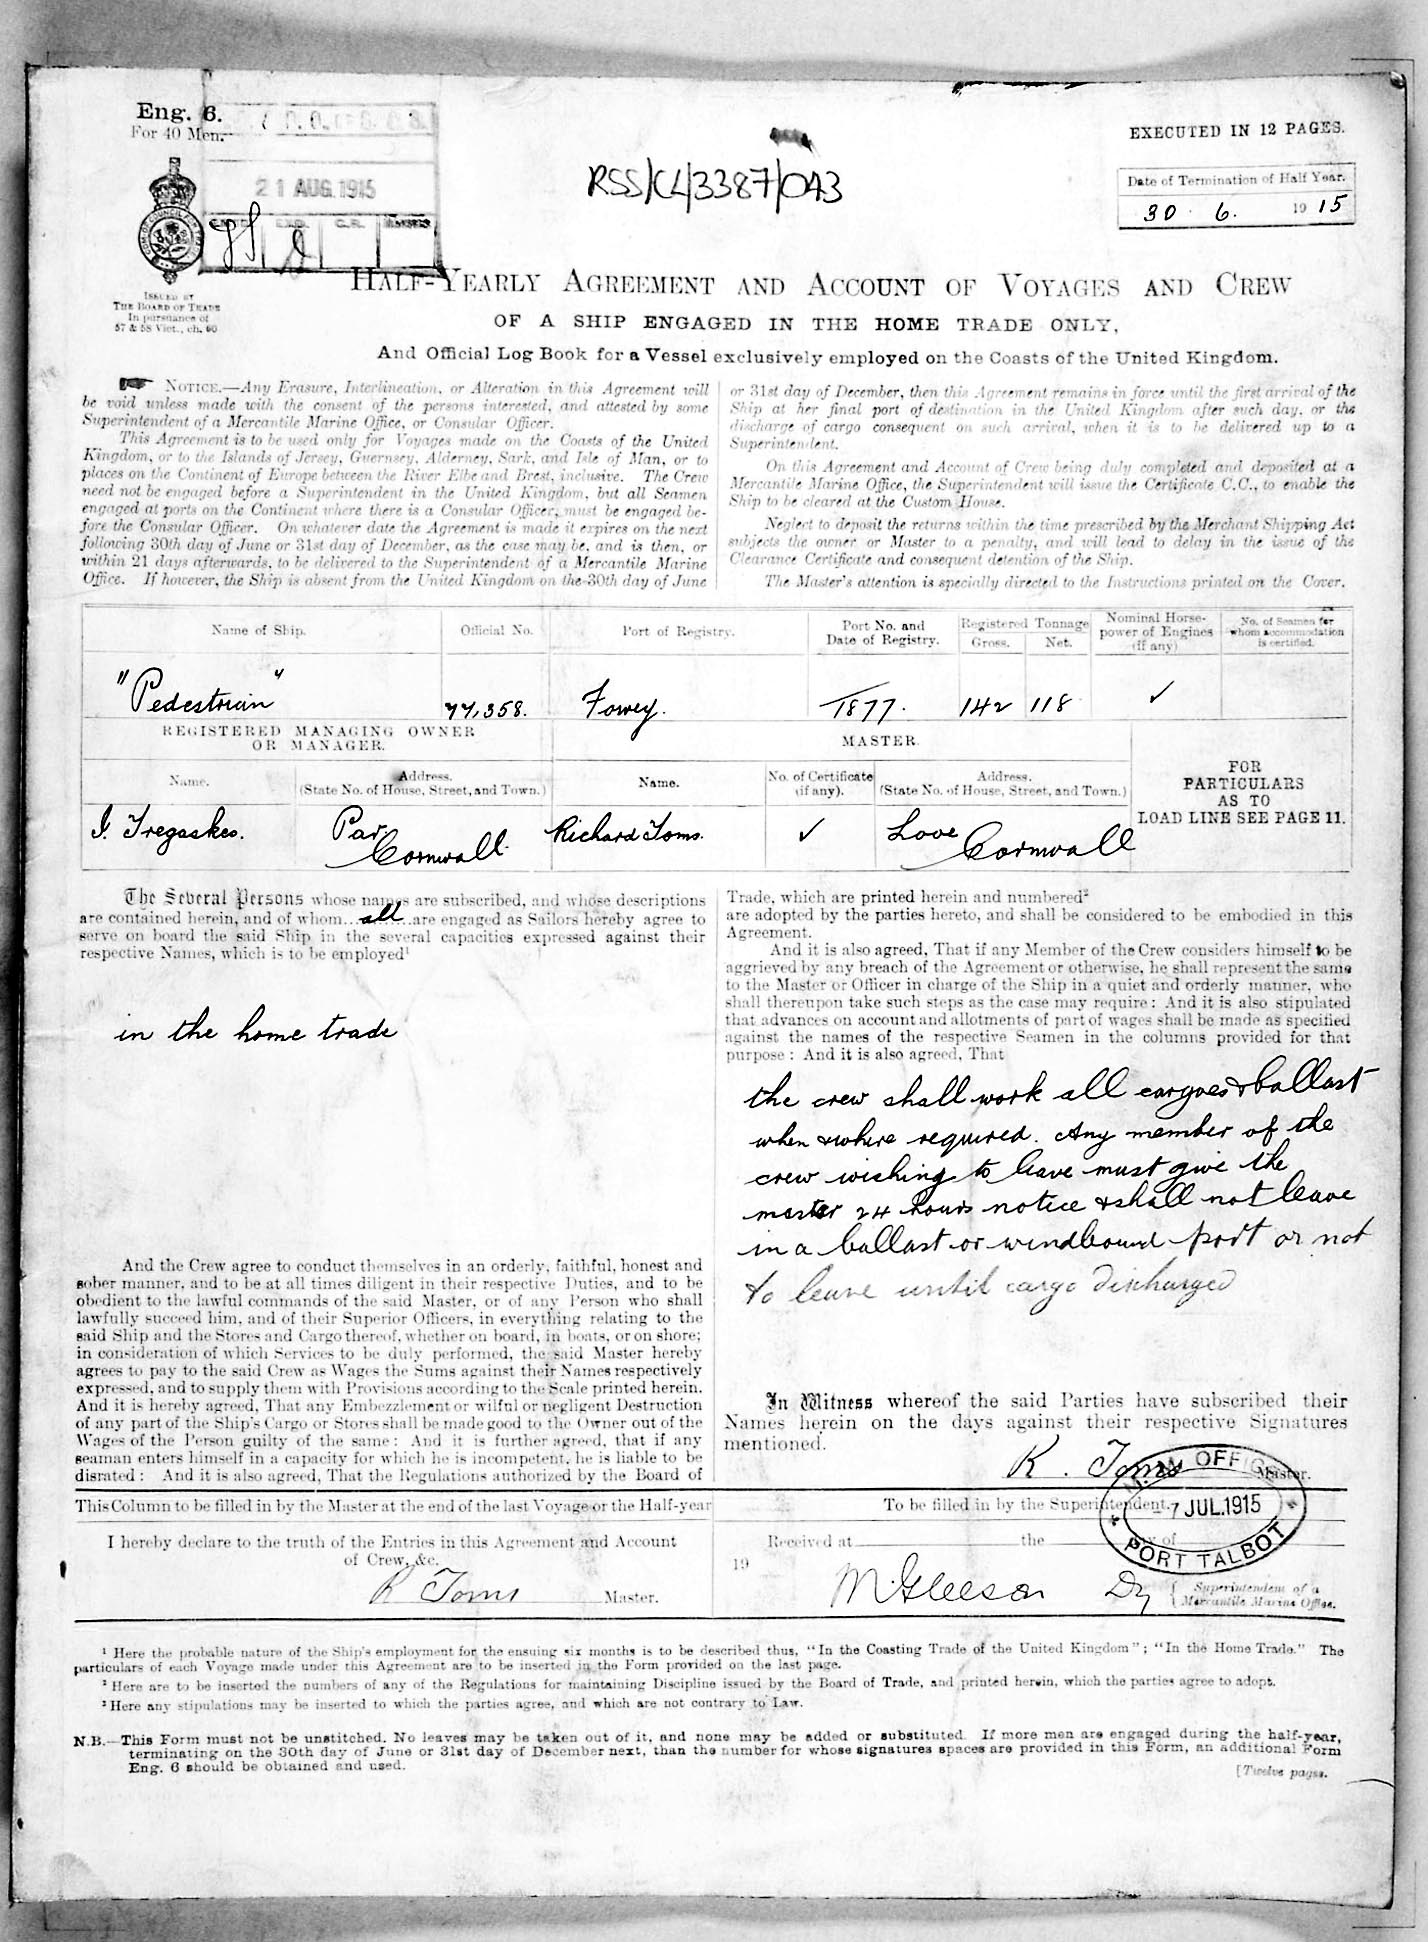 Eng. 6.
For 40 Men.
21 AUG. 1915
RSS/CL/3387/043
EXECUTED IN 12 PAGES.
Date of Termination of Half Year.
30 . 6. 1915
ISSUED BY
THE BOARD OF TRADE
In pursuance of
57 & 58 Vict., ch. 60
HALF-YEARLY AGREEMENT AND ACCOUNT OF VOYAGES AND CREW
OF A SHIP ENGAGED IN THE HOME TRADE ONLY,
And Official Log Book for a Vessel exclusively employed on the Coasts of the United Kingdom.
NOTICE.—Any Erasure, Interlineation, or Alteration in this Agreement will
be void unless made with the consent of the persons interested, and attested by some
Superintendent of a Mercantile Marine Office, or Consular Officer.
This Agreement is to be used only for Voyages made on the Coasts of the United
Kingdom, or to the Islands of Jersey, Guernsey, Alderney, Sark, and Isle of Man, or to
places on the Continent of Europe between the River Elbe and Brest, inclusive. The Crew
need not be engaged before a Superintendent in the United Kingdom, but all Seamen
engaged at ports on the Continent where there is a Consular Officer, must be engaged be-
fore the Consular Officer. On whatever date the Agreement is made it expires on the next
following 30th day of June or 31st day of December, as the case may be, and is then, or
within 21 days afterwards, to be delivered to the Superintendent of a Mercantile Marine
Office. If however, the Ship is absent from the United Kingdom on the 30th day of June
or 31st day of December, then this Agreement remains in force until the first arrival of the
Ship at her final port of destination in the United Kingdom after such day, or the
discharge of cargo consequent on such arrival, when it is to be delivered up to a
Superintendent.
On this Agreement and Account of Crew being duly completed and deposited at a
Mercantile Marine Office, the Superintendent will issue the Certificate C.C., to enable the
Ship to be cleared at the Custom House.
Neglect to deposit the returns within the time prescribed by the Merchant Shipping Act
subjects the owner or Master to a penalty, and will lead to delay in the issue of the
Clearance Certificate and consequent detention of the Ship.
The Master's attention is specially directed to the Instructions printed on the Cover.
Name of Ship. Official No. Port of Registry. Port No. and Date of Registry. Registered Tonnage Gross. Net. Nominal Horse-power of Engines (if any) No. of Seamen for whom accommodation is certified.
"Pedestrian" 77,358. Fowey. 1877. 142 118 ✓
REGISTERED MANAGING OWNER
OR MANAGER.
MASTER.
Name. Address. (State No. of House, Street, and Town.) Name. No. of Certificate (if any). Address. (State No. of House, Street, and Town.)
FOR
PARTICULARS
AS TO
LOAD LINE SEE PAGE 11.
I. Tregaskes. Par Richard Toms. ✓ Looe
Cornwall. Cornwall
The Several Persons whose names are subscribed, and whose descriptions
are contained herein, and of whom all are engaged as Sailors hereby agree to
serve on board the said Ship in the several capacities expressed against their
respective Names, which is to be employed¹
in the home trade
And the Crew agree to conduct themselves in an orderly, faithful, honest and
sober manner, and to be at all times diligent in their respective Duties, and to be
obedient to the lawful commands of the said Master, or of any Person who shall
lawfully succeed him, and of their Superior Officers, in everything relating to the
said Ship and the Stores and Cargo thereof, whether on board, in boats, or on shore;
in consideration of which Services to be duly performed, the said Master hereby
agrees to pay to the said Crew as Wages the Sums against their Names respectively
expressed, and to supply them with Provisions according to the Scale printed herein.
And it is hereby agreed, That any Embezzlement or wilful or negligent Destruction
of any part of the Ship's Cargo or Stores shall be made good to the Owner out of the
Wages of the Person guilty of the same: And it is further agreed, that if any
seaman enters himself in a capacity for which he is incompetent, he is liable to be
disrated: And it is also agreed, That the Regulations authorized by the Board of
Trade, which are printed herein and numbered²
are adopted by the parties hereto, and shall be considered to be embodied in this
Agreement.
And it is also agreed, That if any Member of the Crew considers himself to be
aggrieved by any breach of the Agreement or otherwise, he shall represent the same
to the Master or Officer in charge of the Ship in a quiet and orderly manner, who
shall thereupon take such steps as the case may require: And it is also stipulated
that advances on account and allotments of part of wages shall be made as specified
against the names of the respective Seamen in the columns provided for that
purpose: And it is also agreed, That
the crew shall work all cargoes & ballast
when & where required. Any member of the
crew wishing to leave must give the
master 24 hours notice & shall not leave
in a ballast or windbound port or not
to leave until cargo discharged
In Witness whereof the said Parties have subscribed their
Names herein on the days against their respective Signatures
mentioned.
R. Toms Master.
This Column to be filled in by the Master at the end of the last Voyage or the Half-year
I hereby declare to the truth of the Entries in this Agreement and Account
of Crew, &c.
R Toms Master.
To be filled in by the Superintendent.
Received at the day of
19
M. M. OFFICE
7 JUL. 1915
PORT TALBOT
M. Gleeson Dy Superintendent of a
Mercantile Marine Office.
¹ Here the probable nature of the Ship's employment for the ensuing six months is to be described thus, "In the Coasting Trade of the United Kingdom"; "In the Home Trade." The
particulars of each Voyage made under this Agreement are to be inserted in the Form provided on the last page.
² Here are to be inserted the numbers of any of the Regulations for maintaining Discipline issued by the Board of Trade, and printed herein, which the parties agree to adopt.
³ Here any stipulations may be inserted to which the parties agree, and which are not contrary to Law.
N.B.—This Form must not be unstitched. No leaves may be taken out of it, and none may be added or substituted. If more men are engaged during the half-year,
terminating on the 30th day of June or 31st day of December next, than the number for whose signatures spaces are provided in this Form, an additional Form
Eng. 6 should be obtained and used.
[Twelve pages.